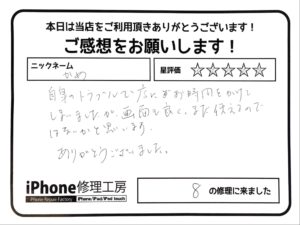 本日は当店をご利用頂きありがとうございます！
ご感想をお願いします！
ニックネーム
かめ
星評価 ☆☆☆☆☆
自身のトラブルで店にもお時間をかけて
しまいましたが、画面も良く、まだ使えるので
はないかと思います。
ありがとうございました。
iPhone修理工房
iPhone Repair Factory iPhone/iPad/iPod touch
8 の修理に来ました